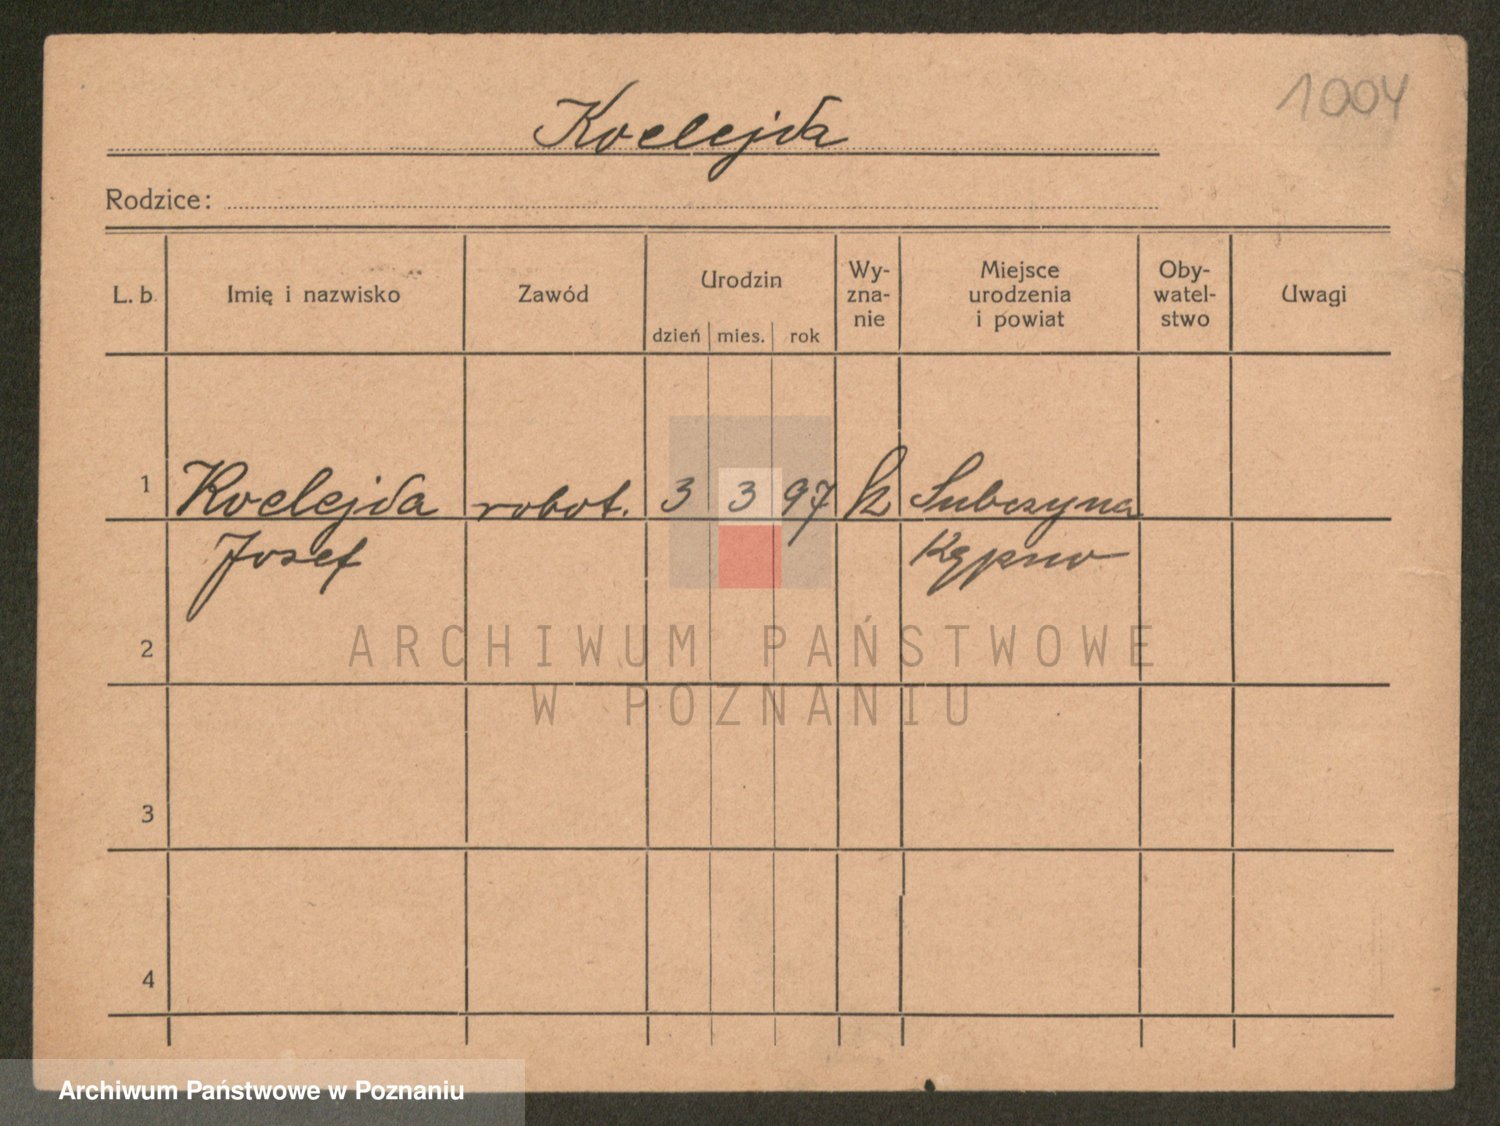 1004
Koelejda
Rodzice:
L. b.
Imię i nazwisko
Zawód
Urodzin
dzień
mies.
rok
Wy-
zna-
nie
Miejsce
urodzenia
i powiat
Oby-
watel-
stwo
Uwagi
1
Koelejda
Josef
robot.
3
3
97
k
Kępno
2
3
4
ARCHIWUM PAŃSTWOWE
W POZNANIU
Archiwum Państwowe w Poznaniu